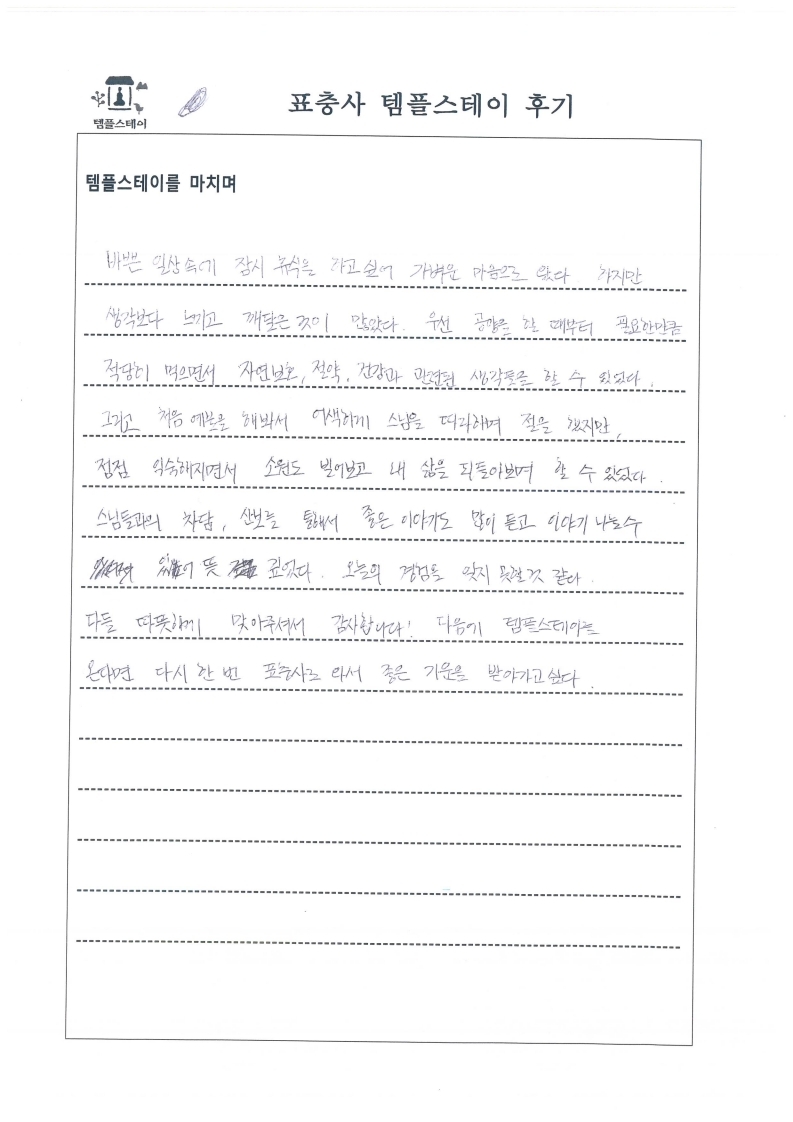 템플스테이
표충사 템플스테이 후기
템플스테이를 마치며
바쁜 일상속에 잠시 휴식을 하고싶어 가벼운 마음으로 왔다 하지만
생각보다 느끼고 깨달은 것이 많았다. 우선 공양을 할 때부터 필요한만큼
적당히 먹으면서 자연보호, 절약, 건강과 관련된 생각들을 할 수 있었다.
그리고 처음 예불을 해봐서 어색하게 스님을 따라하며 절을 했지만,
점점 익숙해지면서 소원도 빌어보고 내 삶을 되돌아보며 할 수 있었다.
스님들과의 차담, 산보를 통해서 좋은 이야기도 많이 듣고 이야기 나눌수
있어 뜻 깊었다. 오늘의 경험을 잊지 못할것 같다.
다들 따뜻하게 맞아주셔서 감사합니다! 다음에 템플스테이를
온다면 다시 한 번 표충사로 와서 좋은 기운을 받아가고싶다.